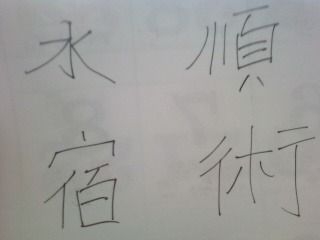 水 順
宿 術